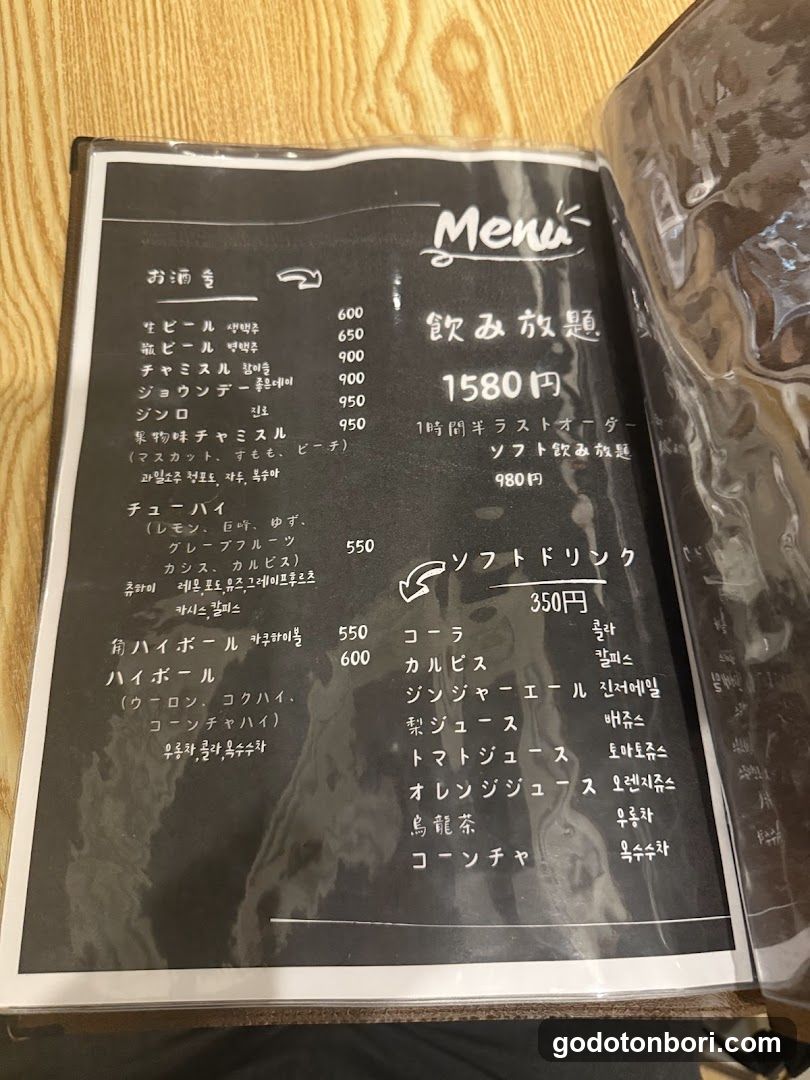 Menu
お酒 술
生ビール 생맥주 600
瓶ビール 병맥주 650
チャミスル 참이슬 900
ジョウンデー 좋은데이 900
ジンロ 진로 950
果物味チャミスル 950
(マスカット、すもも、ピーチ)
과일소주 청포도, 자두, 복숭아
チューハイ
(レモン、巨峰、ゆず、
グレープフルーツ 550
カシス、カルピス)
츄하이 레몬,포도,유즈,그레이프후르츠
카시스,칼피스
角ハイボール 카쿠하이볼 550
ハイボール 600
(ウーロン、コクハイ、
コーンチャハイ)
우롱차,콜라,옥수수차
飲み放題
1580円
1時間半ラストオーダー
ソフト飲み放題
980円
ソフトドリンク
350円
コーラ 콜라
カルピス 칼피스
ジンジャーエール 진저에일
梨ジュース 배쥬스
トマトジュース 토마토쥬스
オレンジジュース 오렌지쥬스
烏龍茶 우롱차
コーンチャ 옥수수차
godotonbori.com